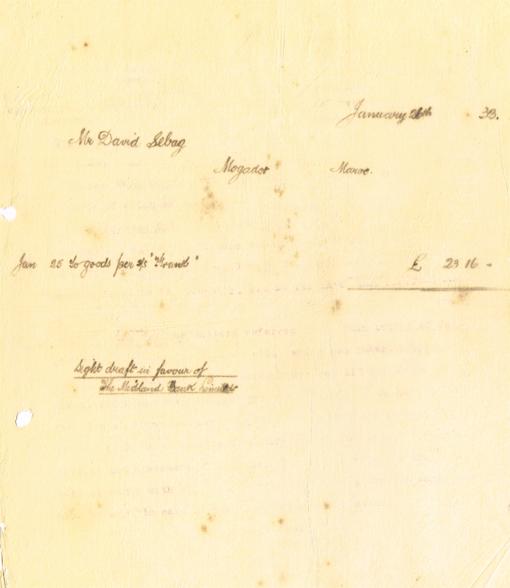 January 26th 33.
Mr David Sebag
Mogador Maroc.
Jan 25 to goods per s/s "Frank" £ 23 16 -
Sight draft in favour of
The Midland Bank Limited